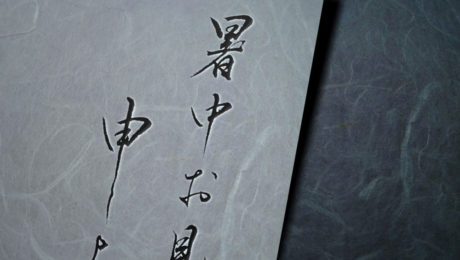 暑中お見
申